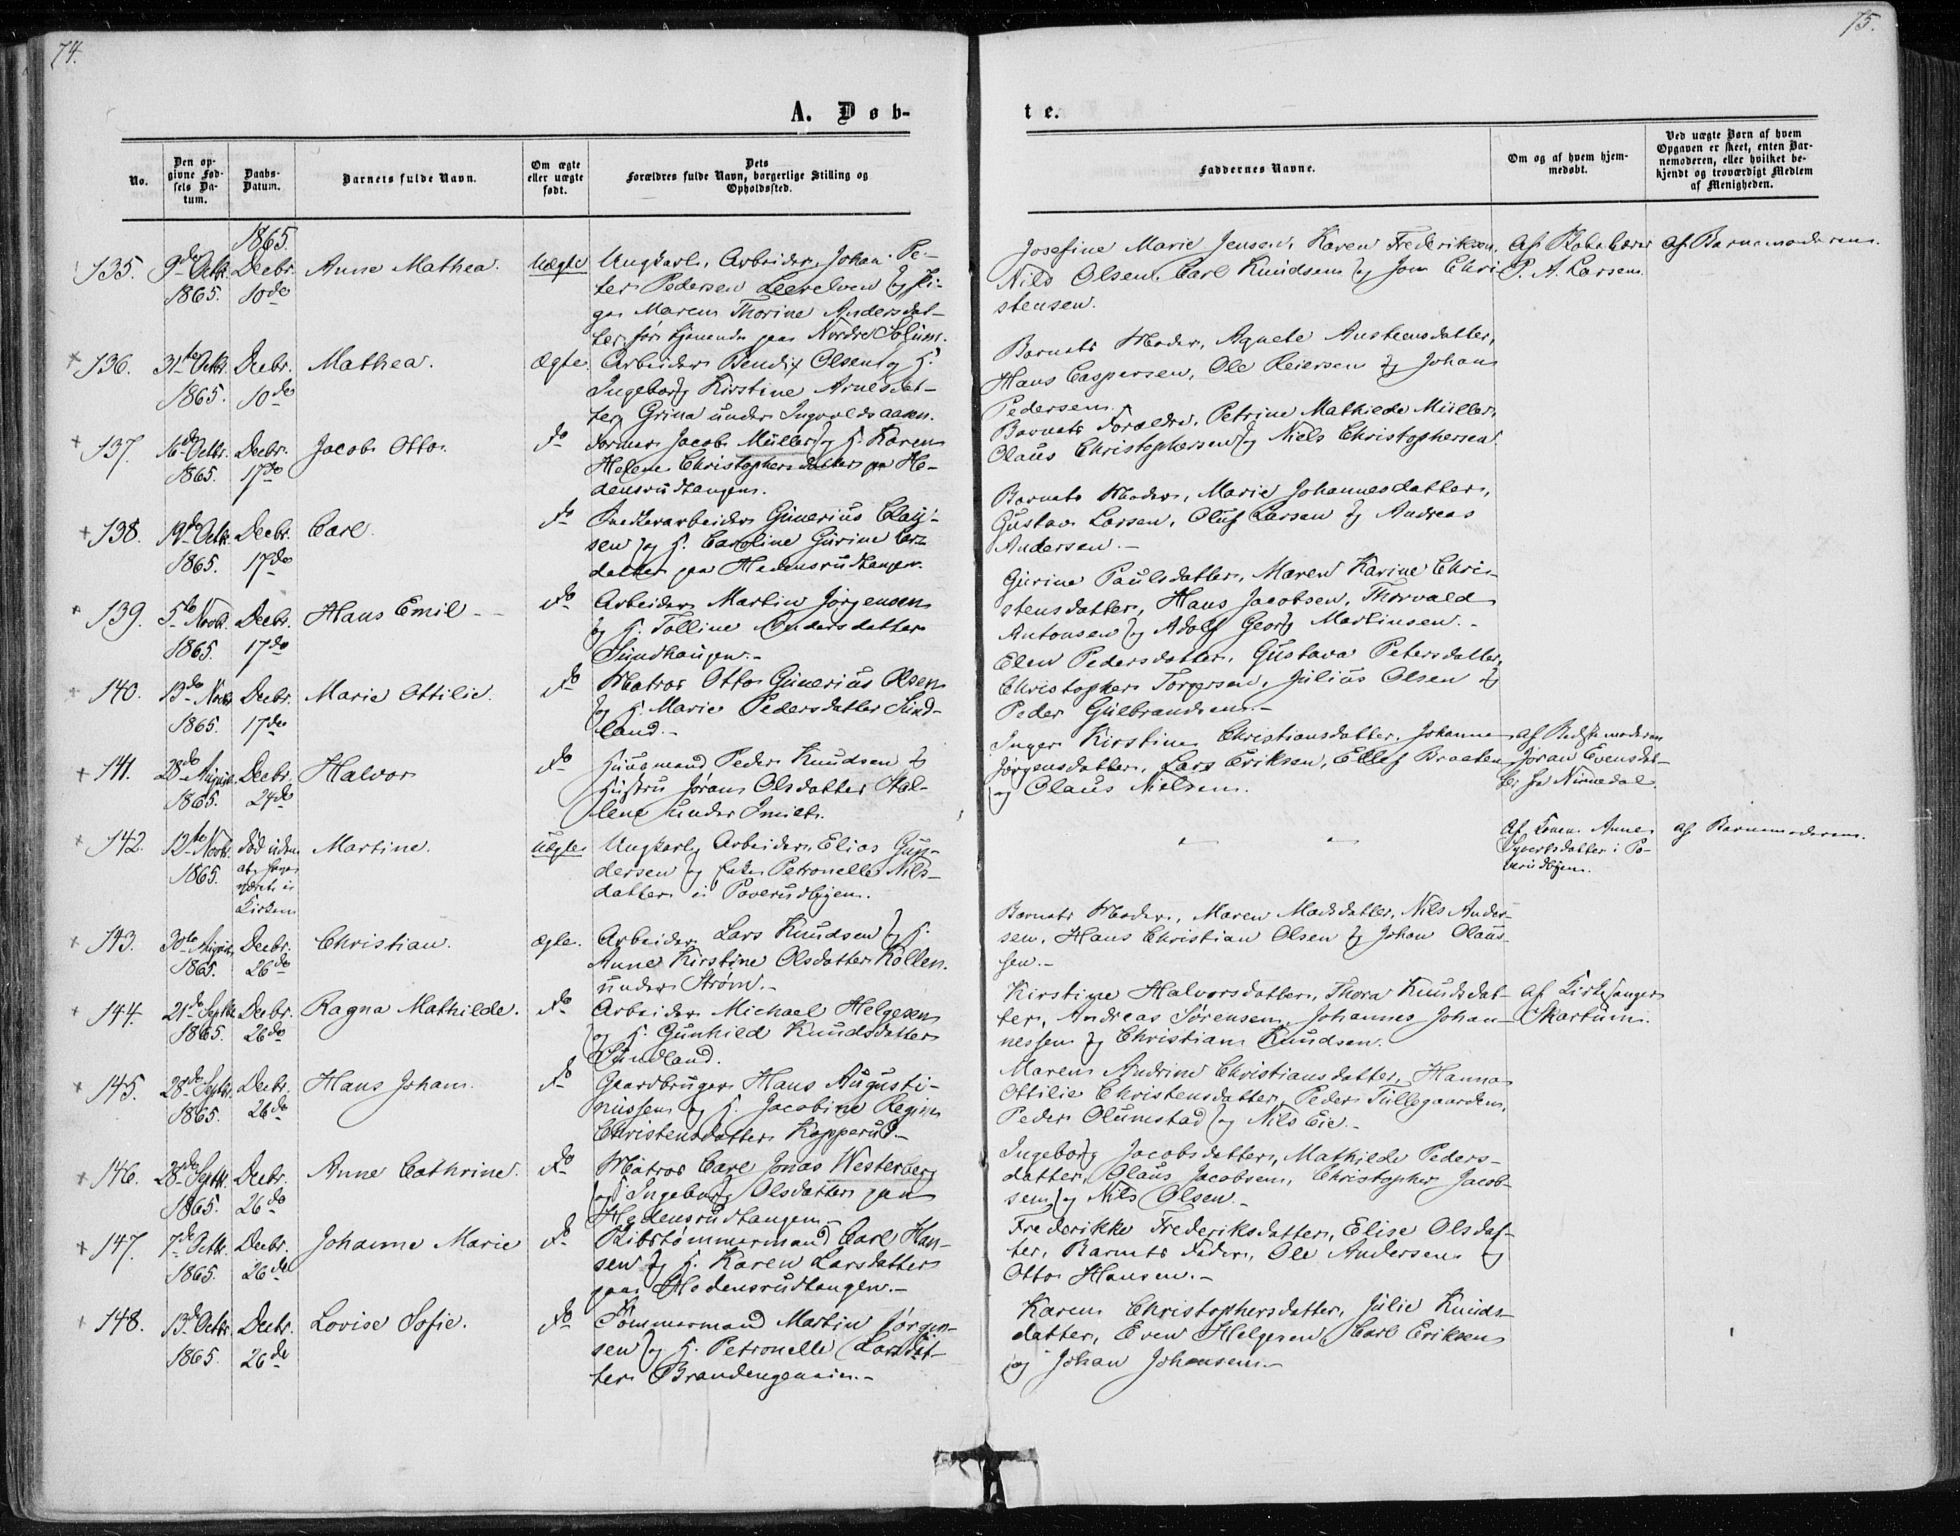 74.
75.
A. Døb-
te.
No.
Den op-
givne Fød-
sels Da-
tum.
Daabs-
Datum.
Barnets fulde Navn.
Om ægte
eller uægte
født.
Dets
Forældres fulde Navn, borgerlige Stilling og
Opholdssted.
Faddernes Navne.
Om og af hvem hjem-
medøbt.
Ved uægte Børn af hvem
Opgaven er skeet, enten Bar-
nemoderen, eller hvilket be-
kjendt og troværdigt Medlem
af Menigheden.
1865.
135. 9de Octbr. 1865. Decbr. 10de Anne Mathea. Uægte
Ungkarl, Arbeider Johan Pe-
ter Pedersen Leerelven og Pi-
ge Maren Thorine Andersdat-
ter før tjenende paa Nordre Solum.
Josefine Marie Jensen, Karen Frederiksen,
Nils Olsen, Carl Knudsen og Jon Chri-
stensen.
af
P. A. Larsen.
af Barnemoderen.
136. 31te Octbr. 1865. Decbr. 10de Mathea. Ægte.
Arbeider Bendix Olsen og H.
Ingeborg Kirstine Arnesdat-
ter Grina under Ingvoldsaasen.
Barnets Moder, Agnete Austeensdatter,
Hans Caspersen, Ole Reiersen og Johan
Pedersen.
137. 16de Octbr. 1865. Decbr. 17de Jacob Otto. do
Former Jacob Müller og H. Karen
Helene Christophersdatter paa He-
densrudtangen.
Barnets Forældre, Petrine Mathilde Müller,
Claus Christophersen og Niels Christophersen.
138. 19de Octbr. 1865. Decbr. 17de Carl. do
Snedkerarbeider Gunerius Clau-
sen og H. Caroline Gurine Lars-
datter paa Hedensrudtangen.
Barnets Moder, Marie Johannesdatter,
Gustav Larsen, Oluf Larsen og Andreas
Andersen.-
139. 5te Novbr. 1865. Decbr. 17de Hans Emil - do
Arbeider Martin Jørgensen
og H. Tolline Andersdatter
Sundhaugen.-
Gurine Paulsdatter, Maren Karine Chri-
stensdatter, Hans Jacobsen, Thorvald
Antonsen og Adolf Georg Martinsen.-
140. 13de Novbr. 1865. Decbr. 17de Marie Ottilie. do
Matros Otto Gunerius Olsen
og H. Marie Pedersdatter Sund-
land.-
Elen Pedersdatter, Gustava Petersdatter,
Christopher Torgersen, Julius Olsen og
Peder Gulbrandsen.-
141. 28de August 1865. Decbr. 24de Halvor do
Huusmand Peder Knudsen og
Hustru Jøran Olsdatter Hal-
lene under Smidt.
Inger Kirstine Christiansdatter, Johanne
Jørgensdatter, Lars Eriksen, Ellef Braaten
og Claus Nielsen.
af Bedstemoderen
Jøran Evensdat-
ter fra Nissedal.
142. 12te Novbr. 1865. død uden
at have
været i
Kirken
Martine. Uægte
Ungkarl Arbeider Elias Gun-
dersen og Enke Petronelle Nils-
datter i Poverudbyen.
" "
Af Konen Anne
Syvertsdatter i Po-
verudbyen.
af Barnemoderen.
143. 30te August 1865. Decbr. 26de Christian. ægte.
Arbeider Lars Knudsen og H.
Anne Kirstine Olsdatter Kollen
under Strøm.-
Barnets Moder, Maren Madsdatter, Nils Ander-
sen, Hans Christian Olsen og Johan Claus-
sen.-
144. 21de Septbr. 1865. Decbr. 26de Ragna Mathilde. do
Arbeider Michael Helgesen
og H. Gunhild Knudsdatter
Sundland.
Kirstine Halvorsdatter, Thora Knudsdat-
ter, Andreas Sørensen, Johannes Johan-
nessen og Christian Knudsen.
af Kirkesanger
Skartum.
145. 28de Septbr. 1865. Decbr. 26de Hans Johan. do
Gaardbruger Hans Augusti-
nussen og H. Jacobine Regine
Christensdatter Kopperud.-
Maren Andrine Christiansdatter, Hanna
Ottilie Christensdatter, Peder Tollegaarden,
Peder Olumstad og Nils Eie.-
146. 28de Septbr. 1865. Decbr. 26de Anne Cathrine. do
Matros Carl Jonas Westerberg
og H. Ingeborg Olsdatter paa
Hedensrudtangen.-
Ingeborg Jacobsdatter, Mathilde Peders-
datter, Claus Jacobsen, Christopher Jacob-
sen og Nils Olsen.-
147. 7de Octbr. 1865. Decbr. 26de Johanne Marie do
Skibstømmermand Carl Han-
sen og H. Karen Larsdatter
paa Hedensrudtangen.-
Frederikke Frederiksdatter, Elise Olsdat-
ter, Barnets Fader, Ole Andersen og
Otto Hansen.-
148. 13de Octbr. 1865. Decbr. 26de Lovise Sofie. do
Tømmermand Martin Jørgen-
sen og H. Petronelle Larsdat-
ter Brandengen.-
Karen Christophersdatter, Julie Knuds-
datter, Even Helgesen, Carl Eriksen
og Johan Johansen.-